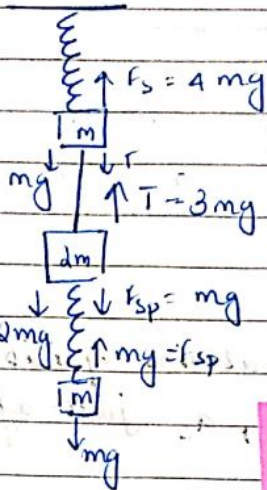 Fs = 4 mg
m
mg
T
T = 3mg
2m
2mg
Fsp = mg
mg = Fsp
m
mg